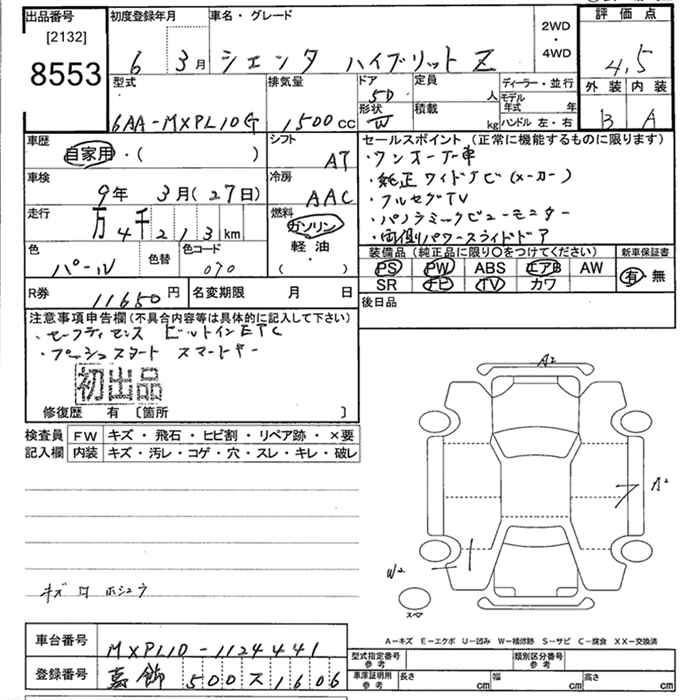 出品番号 初度登録年月 車名・グレード 2WD・4WD 評価点
[2132]
8553 6 3月 シエンタ ハイブリットZ 4.5
型式 排気量 ドア 定員 ディーラー・並行 外装 内装
5D 人 モデル年式 年
6AA-MXPL10G 1500cc 形状 W 積載 kg ハンドル 左・右 B A
車歴 シフト セールスポイント(正常に機能するものに限ります)
自家用・( ) AT ・ワンオーナー車
車検 冷房 ・純正ワイドナビ(メーカー)
9年 3月(27日) AAC ・フルセグTV
走行 燃料 ・パノラミックビューモニター
万 4千 213km ガソリン ・両側パワースライドドア
色 色替 色コード 軽油・( ) 装備品(純正品に限り○をつけてください) 新車保証書
パール 070 PS PW ABS エアB AW 有・無
SR ナビ TV カワ
R券 11650円 名変期限 月 日 後日品
注意事項申告欄(不具合内容等は具体的に記入して下さい)
・セーフティセンス ビルトインETC
・プッシュスタート スマートキー
初出品
修復歴 有 [箇所 ]
検査員記入欄 FW キズ・飛石・ヒビ割・リペア跡・×要
内装 キズ・汚レ・コゲ・穴・スレ・キレ・破レ
A2
A2
W2
スペア
キズ ホシュウ
A-キズ E-エクボ U-凹み W-補修跡 S-サビ C-腐食 XX-交換済
車台番号 MXPL10-1124441 型式指定番号 参考 類別区分番号 参考
登録番号 500ス1606 車庫証明用 参考 長さ cm 幅 cm 高さ cm